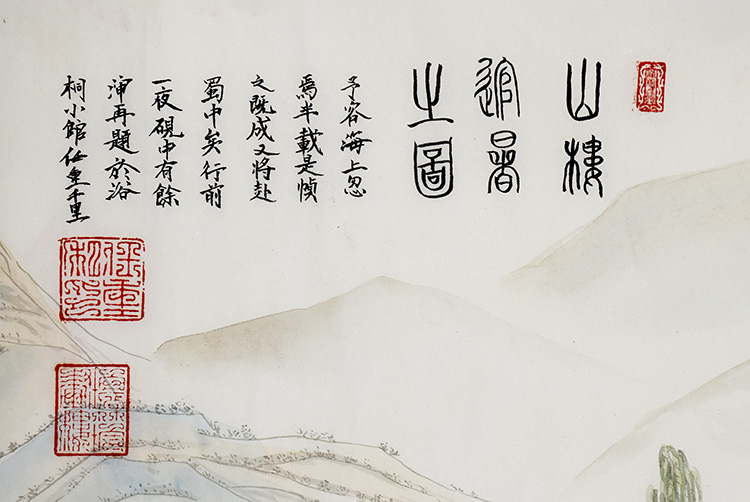 山樓
逭暑
之圖
予客海上忽
焉半載是幀
之既成又將赴
蜀中矣行前
一夜硯中有餘
瀋再題於浴
桐小館任重千里
任重
私印